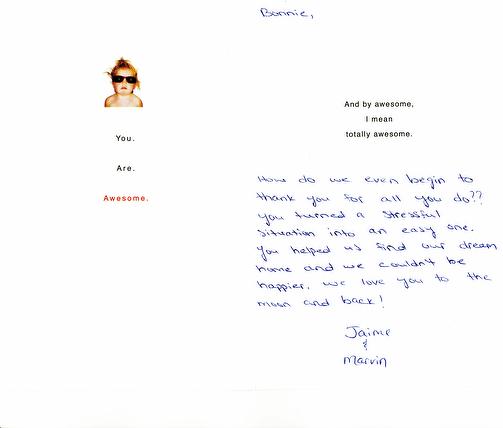 You.
Are.
Awesome.
Bonnie,
And by awesome,
I mean
totally awesome.
How do we even begin to
thank you for all you do??
you turned a stressful
situation into an easy one.
you helped us find our dream
home and we couldn't be
happier. we love you to the
moon and back!
Jaime
&
Marvin